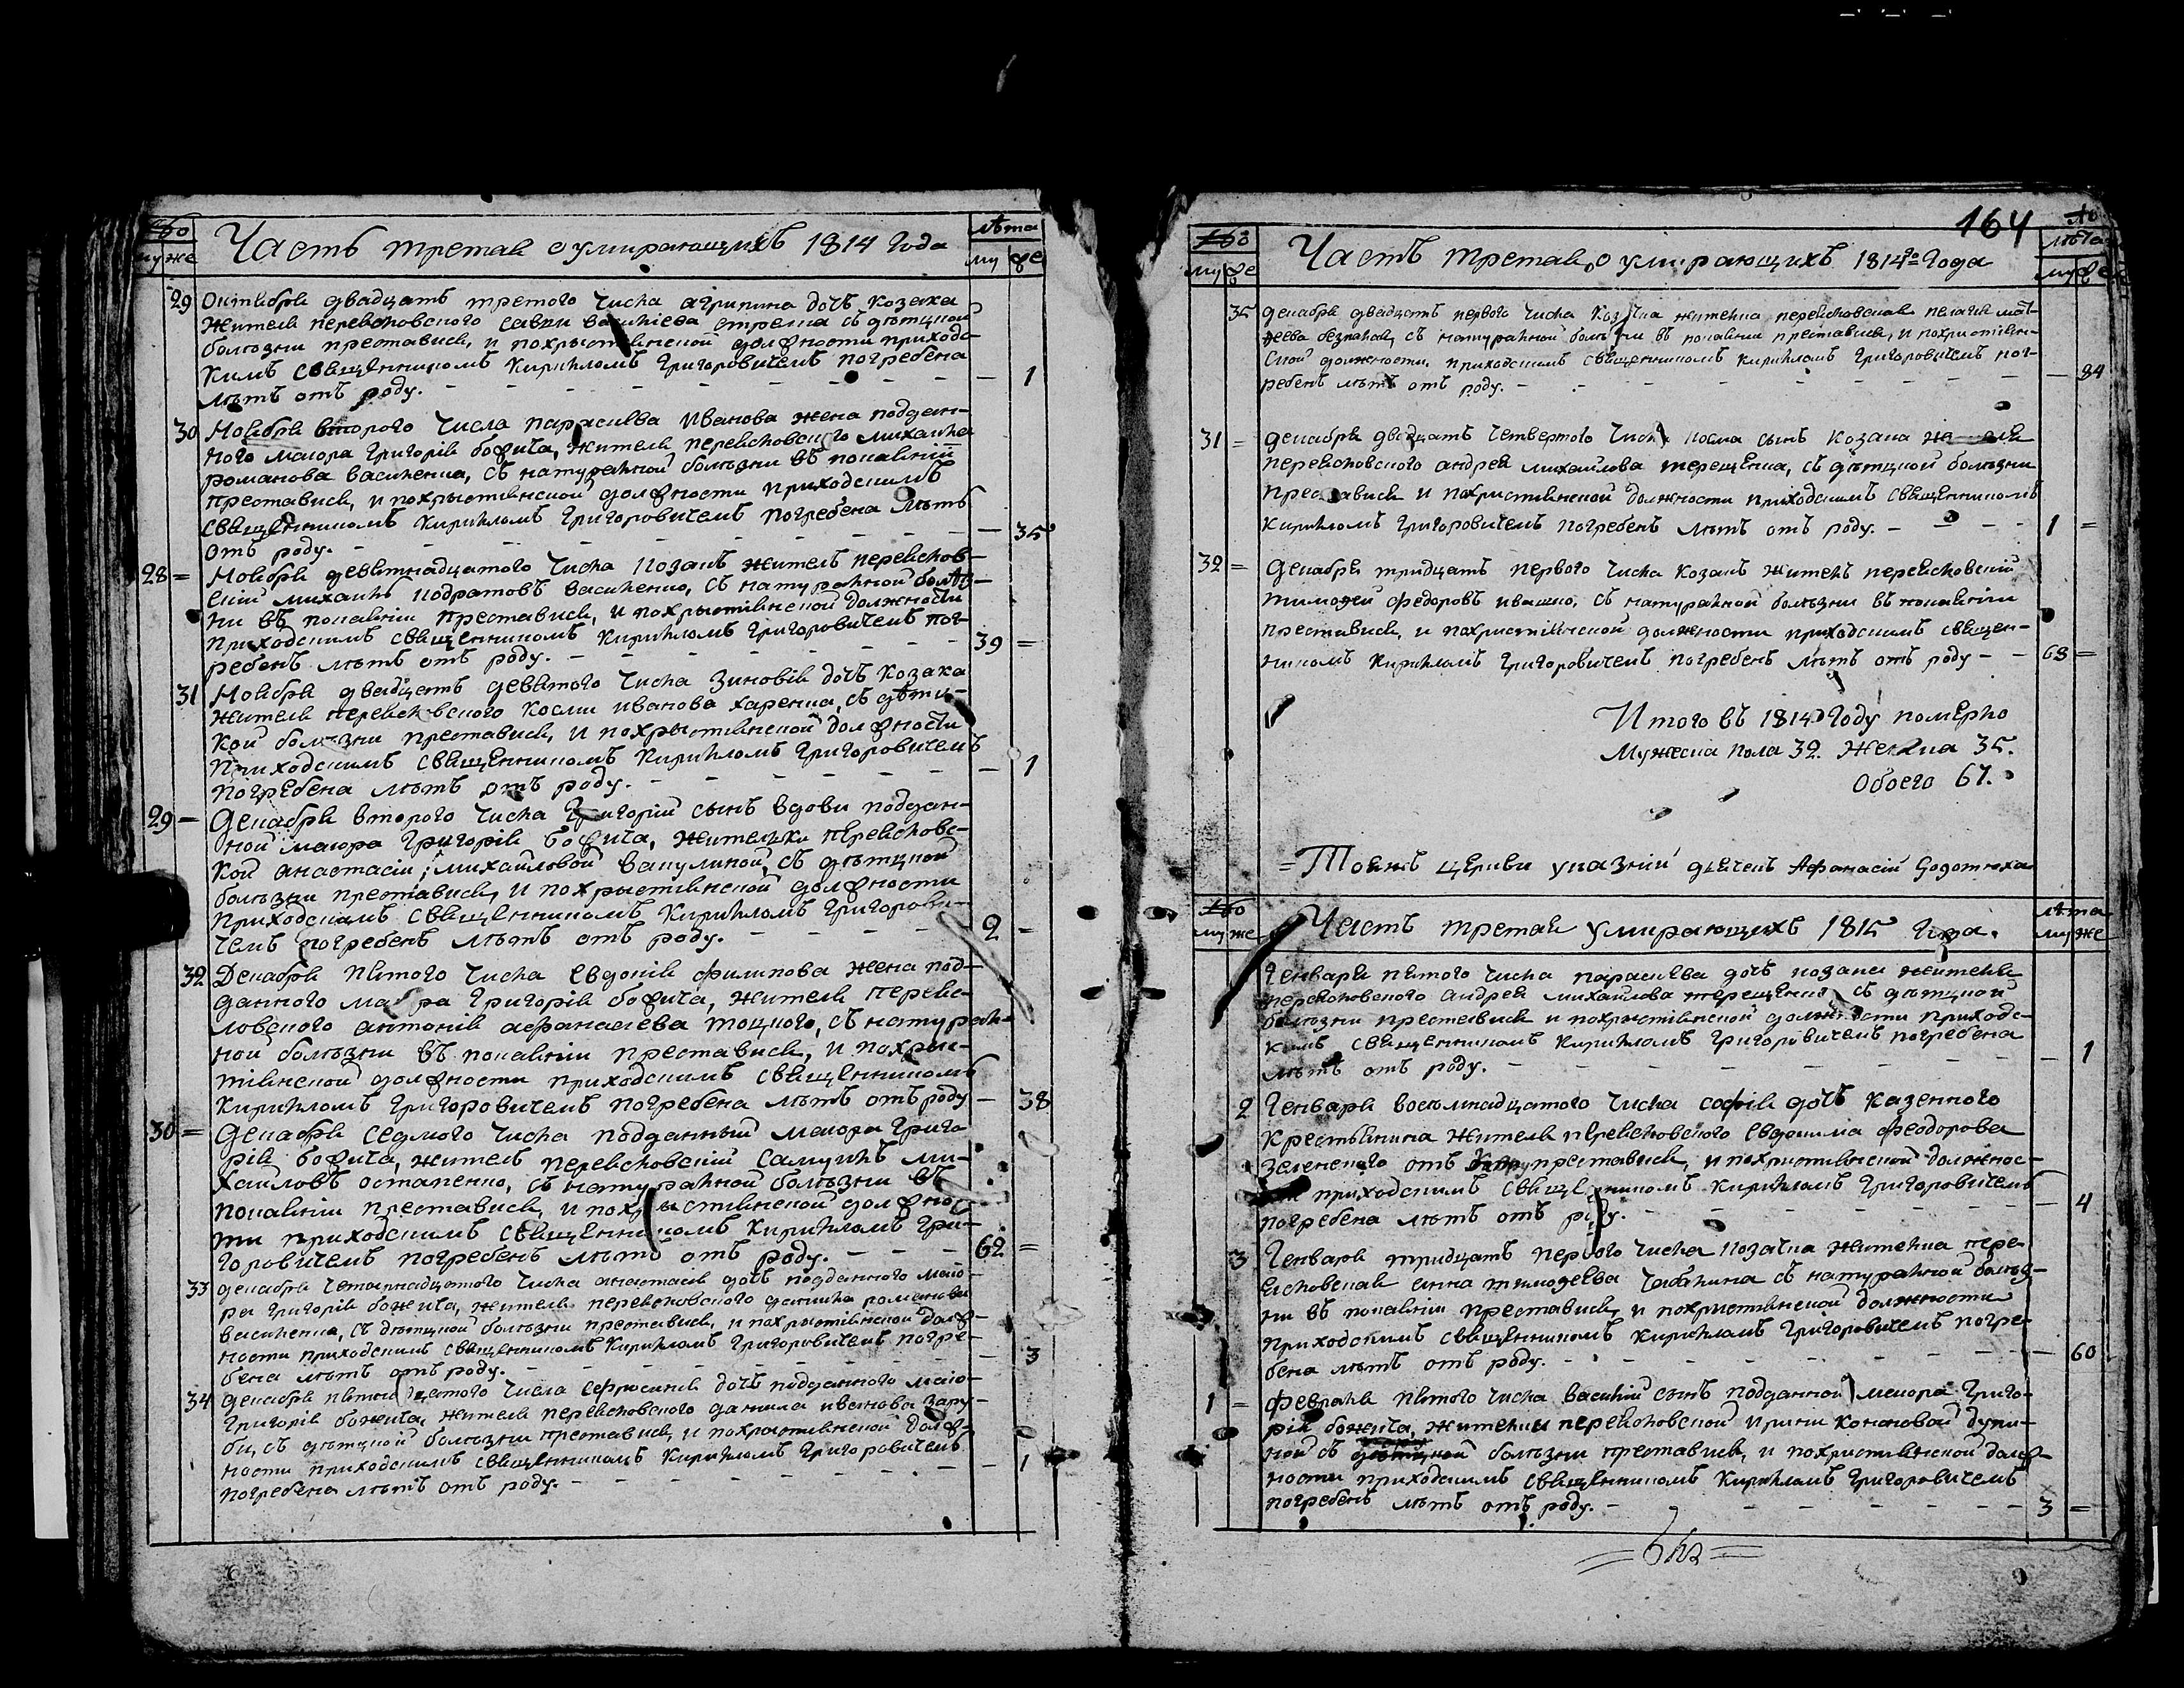 №
му же
Часть третая о умирающихъ 1814 года
лѣта
му же
29 Октября двадцать третого числа агрипина дочь козака
жителя переясковского саввы василіева стреля съ дѣтцкой
болѣзни преставися, и похрыстіянской должности приходс-
кимъ священникомъ Кирилломъ Григоровичемъ погребена
лѣтъ отъ роду. — 1
30 Ноября второго числа параскева Иванова жена поддан-
ного маіора Григорія божича, жителя переясковского михаила
романова василенка, съ натуралной болѣзни въ покаяніи
преставися, и похрыстіянской должности приходскимъ
священникомъ Кирилломъ Григоровичемъ погребена лѣтъ
отъ роду. — 35
28 = Ноября девятнадцатого числа козакъ житель переясков-
скій михаилъ кодратовъ василенко, съ натуралной болѣз-
ни въ покаяніи преставися, и похрыстіянской должности
приходскимъ священникомъ Кирилломъ Григоровичемъ пог-
ребенъ лѣтъ отъ роду. — 39 =
31 Ноября двадцать девятого числа Зиновія дочь козака
жителя переясковского космы иванова харенка, съ дѣтц-
кой болѣзни преставися, и похрыстіянской должности
приходскимъ священникомъ Кирилломъ Григоровичемъ
погребена лѣтъ отъ роду. — 1
29 — Декабря второго числа Григорій сынъ вдовы поддан-
ной маіора Григорія божича, жителки переясковс-
кой анастасіи михайловой вакулиной, съ дѣтцкой
болѣзни преставися, и похрыстіянской должности
приходскимъ священникомъ Кирилломъ Григорови-
чемъ погребенъ лѣтъ отъ роду. — 2 —
32 Декабря пятого числа евдокія филипова жена под-
данного маіора Григорія божича, жителя переяс-
ковского антонія афанасіева тоцкого, съ натурал-
ной болѣзни въ покаяніи преставися, и похрыс-
тіянской должности приходскимъ священникомъ
Кирилломъ Григоровичемъ погребена лѣтъ отъ роду — 38
30 = Декабря седмого числа подданный маіора Григо-
рія божича, житель переясковскій самуилъ ми-
хайловъ остапенко, съ натуралной болѣзни въ
покаяніи преставися, и похрыстіянской должнос-
ти приходскимъ священникомъ Кирилломъ Гри-
горовичемъ погребенъ лѣтъ отъ роду. — 62 =
33 декабря четырнадцатого числа анастасія дочь подданного маіо-
ра Григорія божича, жителя переясковского данила романова
василенка, съ дѣтцкой болѣзни преставися, и похрыстіянской долж-
ности приходскимъ священникомъ Кирилломъ Григоровичемъ погре-
бена лѣтъ отъ роду. — 3
34 декабря пятнадцатого числа ефросинія дочь подданного маіо-
Григорія божича, жителя переясковского данила иванова зару-
бы, съ дѣтцкой болѣзни преставися, и похрыстіянской долж-
ности приходскимъ священникомъ Кирилломъ Григоровичемъ
погребена лѣтъ отъ роду. — 1
164
№
му же
Часть третая, о умирающихъ 1814го Года
лѣта
му же
35 декабря двадцать первого числа козачка жителка переясковская пелагія мат-
ѳеева съ натуралной болѣзни въ покаяніи преставися, и похристіян-
ской должности, приходскимъ священникомъ Кирилломъ Григоровичемъ пог-
ребенъ лѣтъ отъ роду. — 84
31 = декабря двадцать четвертого числа косма сынъ козака жителя
переясковского андрея михайлова терещенка, съ дѣтцкой болѣзни
преставися и похристіянской должности приходскимъ священникомъ
Кирилломъ Григоровичемъ погребенъ лѣтъ отъ роду. — 1 =
32 = Декабря тридцать первого числа козакъ житель переясковскій
тимоѳей федоровъ ивашко, съ натуралной болѣзни въ покаяніи
преставися, и похристіянской должности приходскимъ священ-
никомъ Кирилломъ Григоровичемъ погребенъ лѣтъ отъ роду — 63 =
Итого въ 1814 году померло
Мужеска пола 32. Женска 35.
Обоего 67.
= Тоеяжъ церкви указній дячекъ Афанасій
№
му же
Часть третая умирающихъ 1815 года.
лѣта
му же
Генваря пятого числа параскева дочь козака жителя
переясковского андрея михайлова терещенка съ дѣтцкой
болѣзни преставися и похрыстіянской должности приходс-
кимъ священникомъ Кирилломъ Григоровичемъ погребена
лѣтъ отъ роду. — 1
2 Генваря восемнадцатого числа софія дочь казенного
крестьянина жителя переясковского евдокима феодорова
зеленского отъ преставися, и похристіянской должнос-
ти приходскимъ священникомъ Кирилломъ Григоровичемъ
погребена лѣтъ отъ роду. — 4
3 Генваря тридцать первого числа козачка жителка пере-
ясковская анна тимоѳеева чабанина съ натуралной болѣз-
ни въ покаяніи преставися, и похристіянской должности
приходскимъ священникомъ Кирилломъ Григоровичемъ погре-
бена лѣтъ отъ роду. — 60
1 = Февраля пятого числа василій сынъ подданной маіора Григо-
рія божича, жителки переясковской ирины кононовой
съ болѣзни преставися, и похристіянской долж-
ности приходскимъ священникомъ Кирилломъ Григоровичемъ
погребенъ лѣтъ отъ роду. — 3 =